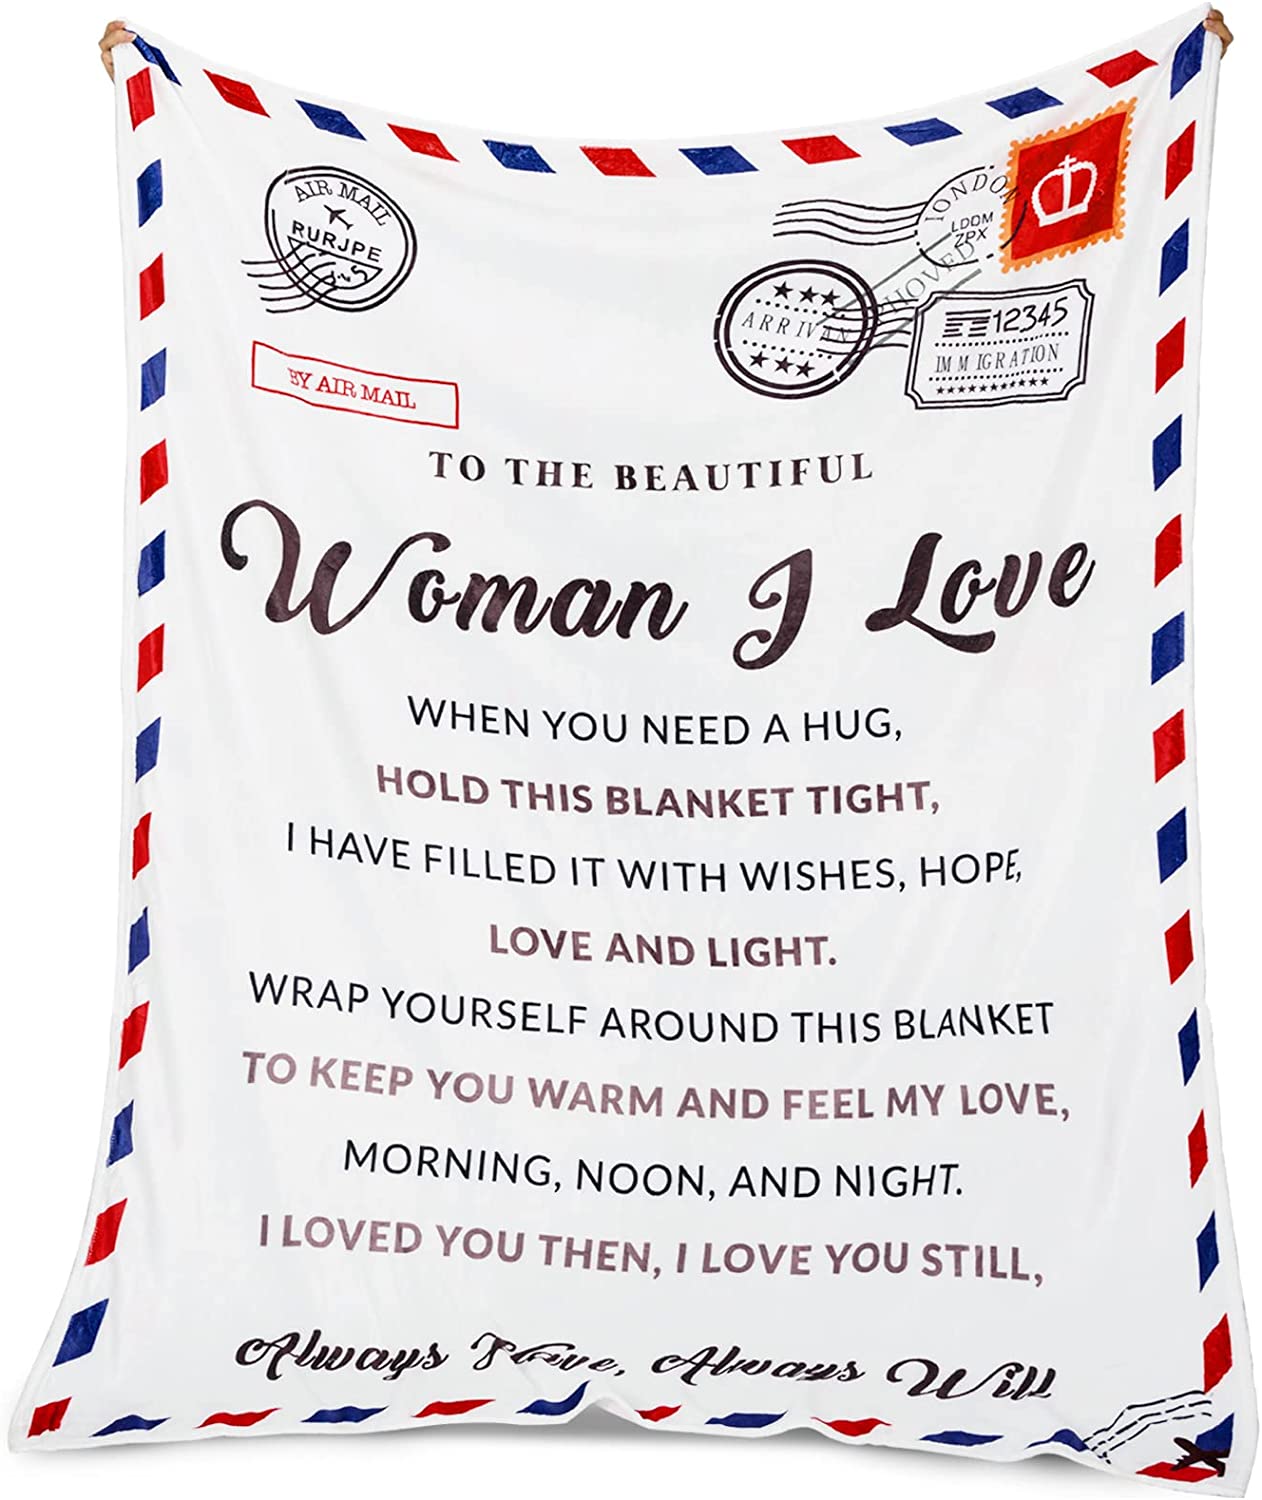 AIR MAIL
RURJPE
LONDON
LDDM
ZPX
ARRIVAN
12345
IMMIGRATION
BY AIR MAIL
TO THE BEAUTIFUL
Woman I Love
WHEN YOU NEED A HUG,
HOLD THIS BLANKET TIGHT,
I HAVE FILLED IT WITH WISHES, HOPE,
LOVE AND LIGHT.
WRAP YOURSELF AROUND THIS BLANKET
TO KEEP YOU WARM AND FEEL MY LOVE,
MORNING, NOON, AND NIGHT.
I LOVED YOU THEN, I LOVE YOU STILL,
Always Have, Always Will